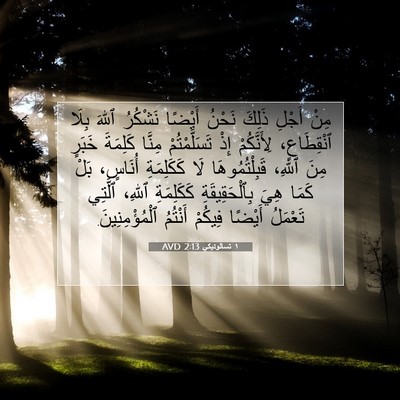 مِنْ أَجْلِ ذَلِكَ نَحْنُ أَيْضًا نَشْكُرُ ٱللهَ بِلَا
ٱنْقِطَاعٍ، لِأَنَّكُمْ إِذْ تَسَلَّمْتُمْ مِنَّا كَلِمَةَ خَبَرٍ
مِنَ ٱللهِ، قَبِلْتُمُوهَا لَا كَكَلِمَةِ أُنَاسٍ، بَلْ
كَمَا هِيَ بِٱلْحَقِيقَةِ كَكَلِمَةِ ٱللهِ، ٱلَّتِي
تَعْمَلُ أَيْضًا فِيكُمْ أَنْتُمُ ٱلْمُؤْمِنِينَ.
١ تسالونيكي 2:13 AVD